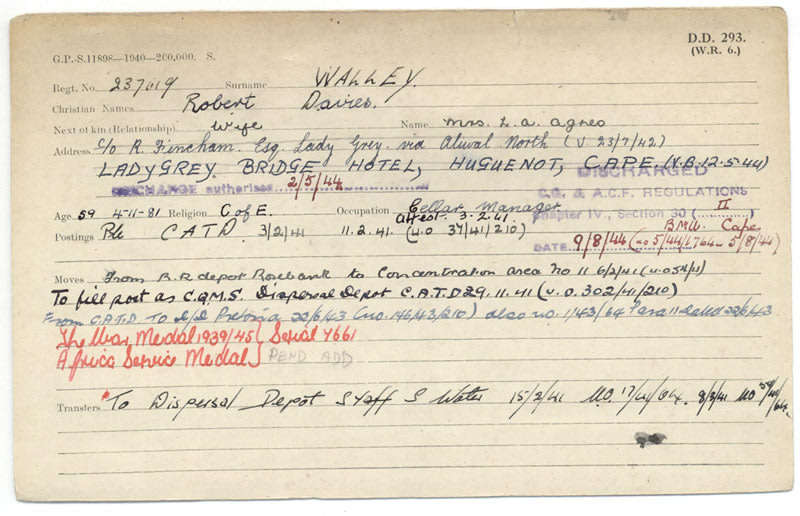 D.D. 293.
(W.R. 6.)
G.P.-S.11898—1940—200,000. S.
Regt. No. 237619 Surname WALLEY.
Christian Names Robert Davies.
Next of kin (Relationship) Wife Name Mrs. L. A. Agnes
Address C/o R. Fincham. Esq. Lady Grey. via Aliwal North (V 23/7/42)
LADYGREY BRIDGE HOTEL, HUGUENOT, CAPE. (V.B. 12.5.44)
DISCHARGE authorised 2/5/44
DISCHARGED
C.G. & A.C.F. REGULATIONS
Chapter IV., Section 30 ( II )
Age 59 4-11-81 Religion C of E. Occupation Cellar Manager
Attest. 3.2.41.
Postings Pte C A T D. 3/2/41 11.2.41. (u.o 37/41/210)
B.M.W. Cape
DATE 9/8/44 (no 5/44/1764 - 5/8/44)
Moves From R.R depot Rosebank to Concentration area No 11 6/2/41
To fill post as C.Q.M.S. Dispersal Depot C.A.T.D 29.11.41 (u.o. 302/41/210)
From C.A.T.D To D/D Pretoria 22/6/43 (no. 146/43/210) also no. 1/43/64 Para 11 dated 22/6/43
The War Medal 1939/45 } Serial 4661
Africa Service Medal } PEND ADD
Transfers To Dispersal Depot Staff S Water 15/2/41 U.O. 17/41/64. 8/3/41 UO